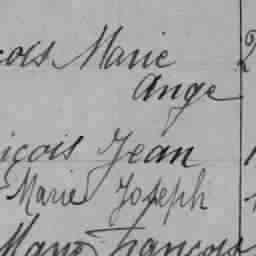 çois Marie
Ange
çois Jean
Marie Joseph
François